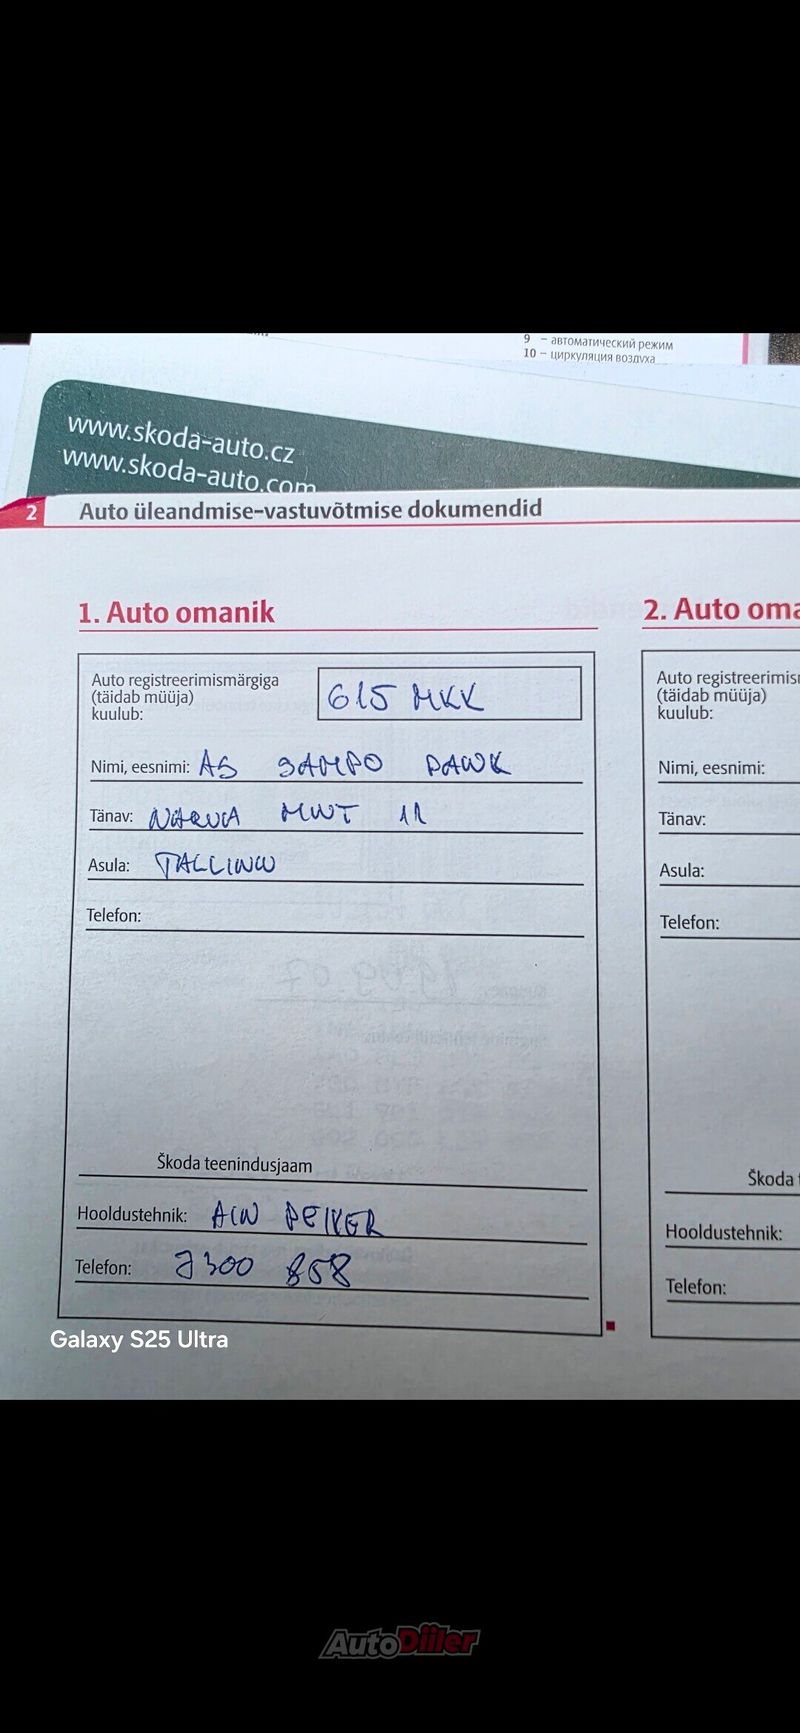 9 – автоматический режим
10 – циркуляция воздуха
www.skoda-auto.cz
www.skoda-auto.com
2 Auto üleandmise-vastuvõtmise dokumendid
1. Auto omanik
Auto registreerimismärgiga
(täidab müüja)
kuulub:
615 MKK
Nimi, eesnimi: AS SAMPO PANK
Tänav: NARVA MNT 11
Asula: TALLINN
Telefon:
Škoda teenindusjaam
Hooldustehnik: AIN PEIKER
Telefon:
2. Auto oma
Auto registreerimis
(täidab müüja)
kuulub:
Nimi, eesnimi:
Tänav:
Asula:
Telefon:
Škoda
Hooldustehnik:
Telefon:
Galaxy S25 Ultra
AutoDiiler